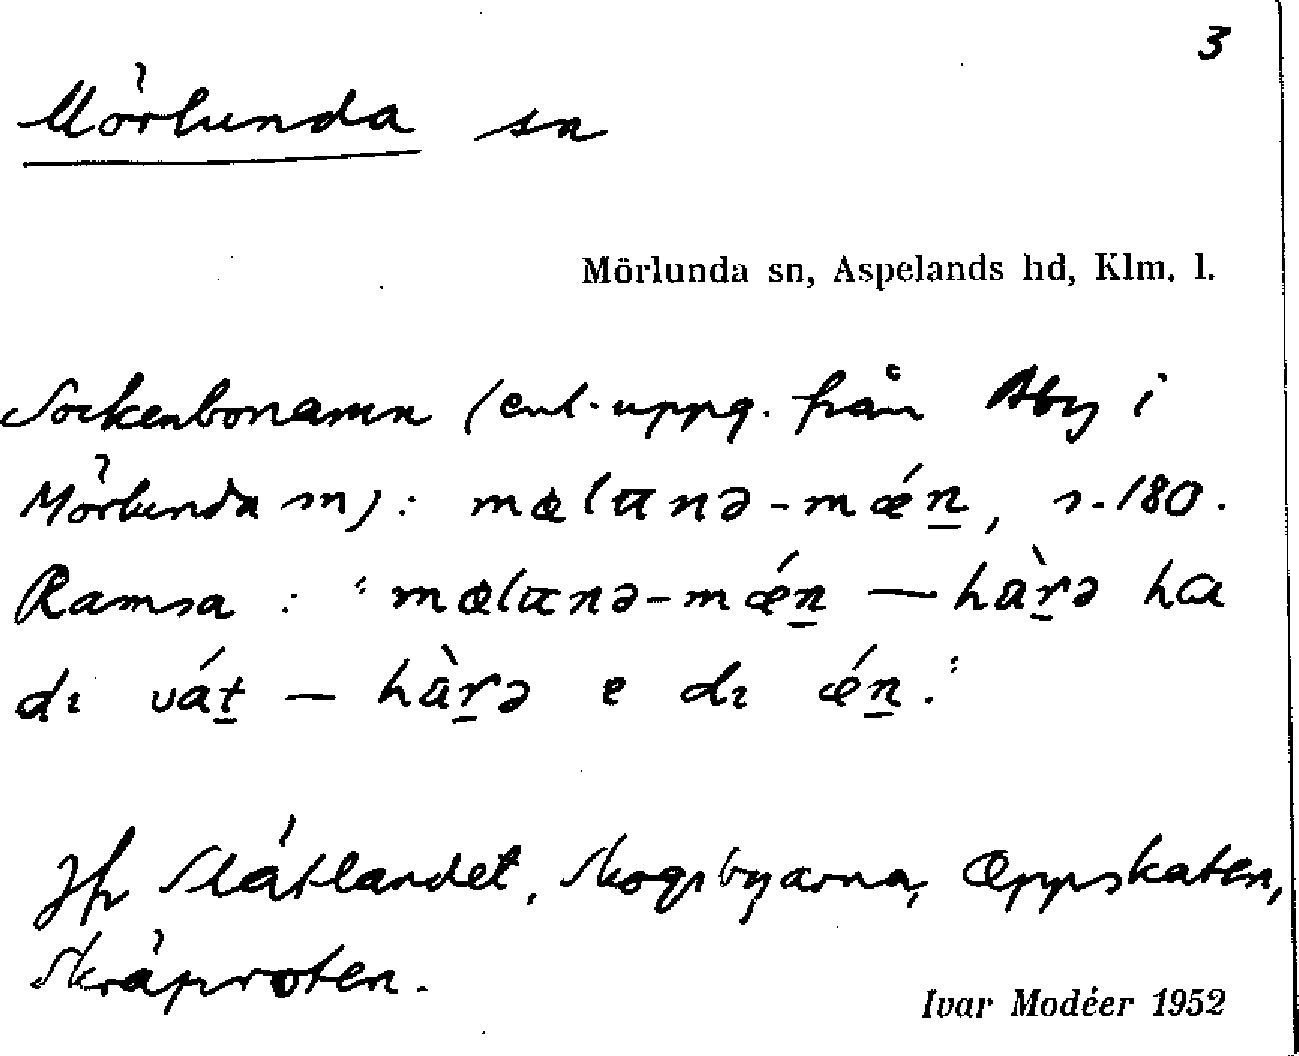 3
Mörlunda sn
Mörlunda sn, Aspelands hd, Klm. l.
Sockenbonamn (enl. uppg. från Åby i
Mörlunda sn): mælɑnə-mǽn̠, s. 180.
Ramsa : "mælɑnə-mǽn̠ — hɑ̀r̠ə ha
dı vát̠ — hɑ̀r̠ə e dı ǽn̠."
Jfr Slätlandet, Skogsbyarna, Œppskaten,
Skräproten.
Ivar Modéer 1952